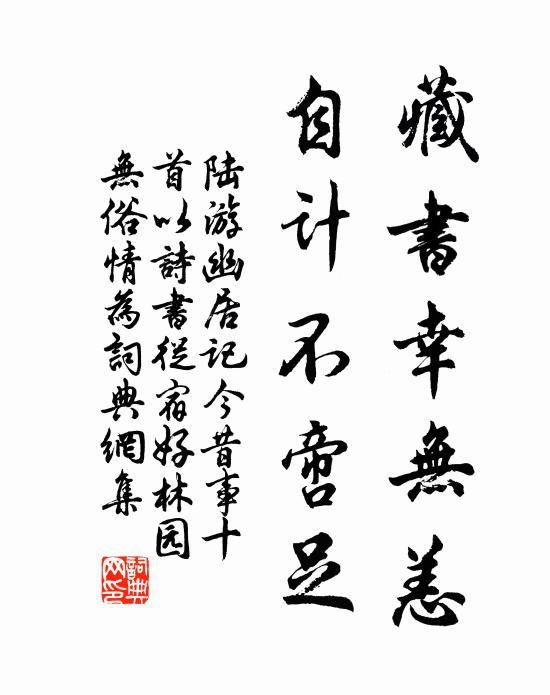 藏書幸無恙
自計不啻足
陆游幽居记今昔事十
首以詩書從宿好林园
無俗情為詞典網集
詞典
网印